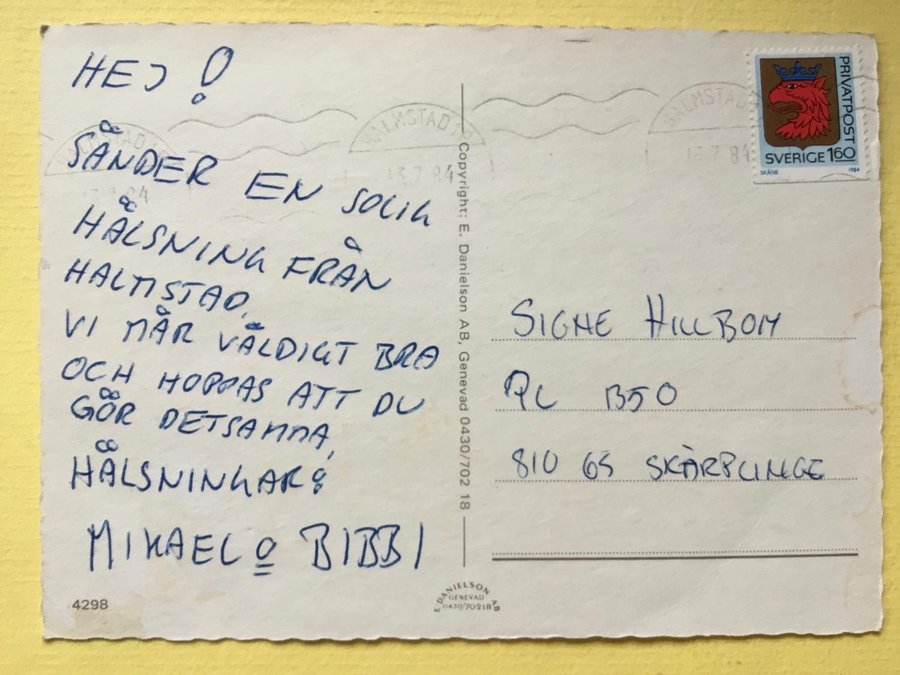 HEJ!
SÄNDER EN SOLIG
HÄLSNING FRÅN
HALMSTAD.
VI MÅR VÄLDIGT BRA
OCH HOPPAS ATT DU
GÖR DETSAMMA,
HÄLSNINGAR!
MIKAEL o BIBBI
4298
Copyright: E. Danielson AB, Genevad 0430/702 18
E. DANIELSON AB
GENEVAD
0430/70218
HALMSTAD
13.7.84
HALMSTAD
13.7.84
PRIVATPOST
SVERIGE 160
SKÅNE 1984
SIGNE HILLBOM
PL 1350
810 65 SKÄRPLINGE